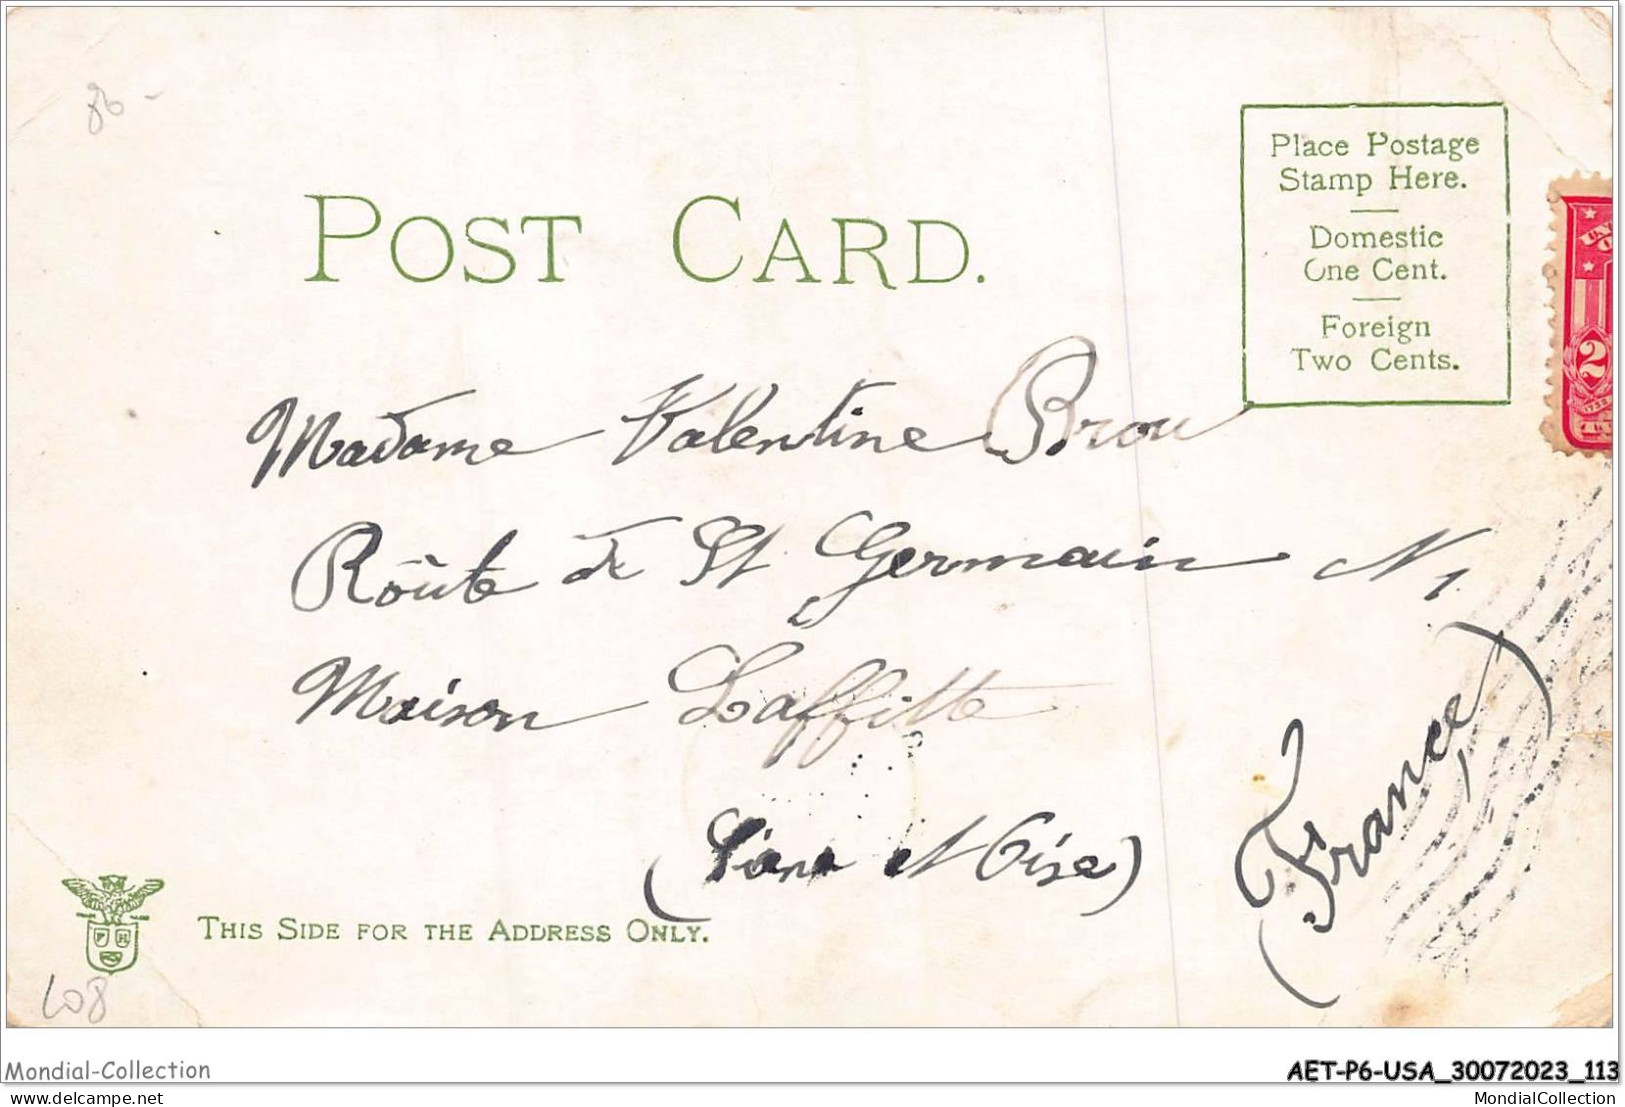 86 -
POST CARD.
Place Postage
Stamp Here.
Domestic
One Cent.
Foreign
Two Cents.
2
Madame Valentine Brou
Roûte de St Germain N 1
Maison Laffitte
(Seine et Oise)
(France)
F H
THIS SIDE FOR THE ADDRESS ONLY.
108
Mondial-Collection
AET-P6-USA_30072023_113
delcampe.net
MondialCollection